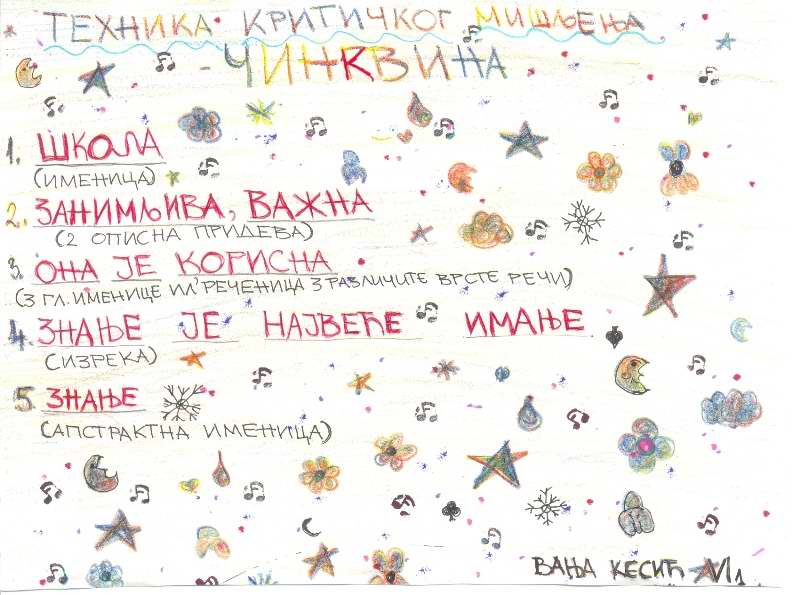 ТЕХНИКА КРИТИЧКОГ МИШЉЕЊА
-ЧИНКВИНА
1. ШКОЛА
(ИМЕНИЦА)
2. ЗАНИМЉИВА, ВАЖНА
(2 ОПИСНА ПРИДЕВА)
3. ОНА ЈЕ КОРИСНА
(3 ГЛ. ИМЕНИЦЕ ИЛ' РЕЧЕНИЦА 3 РАЗЛИЧИТЕ ВРСТЕ РЕЧИ)
4. ЗНАЊЕ ЈЕ НАЈВЕЋЕ ИМАЊЕ
(ИЗРЕКА)
5. ЗНАЊЕ
(АПСТРАКТНА ИМЕНИЦА)
ВАЊА КЕСИЋ VI1